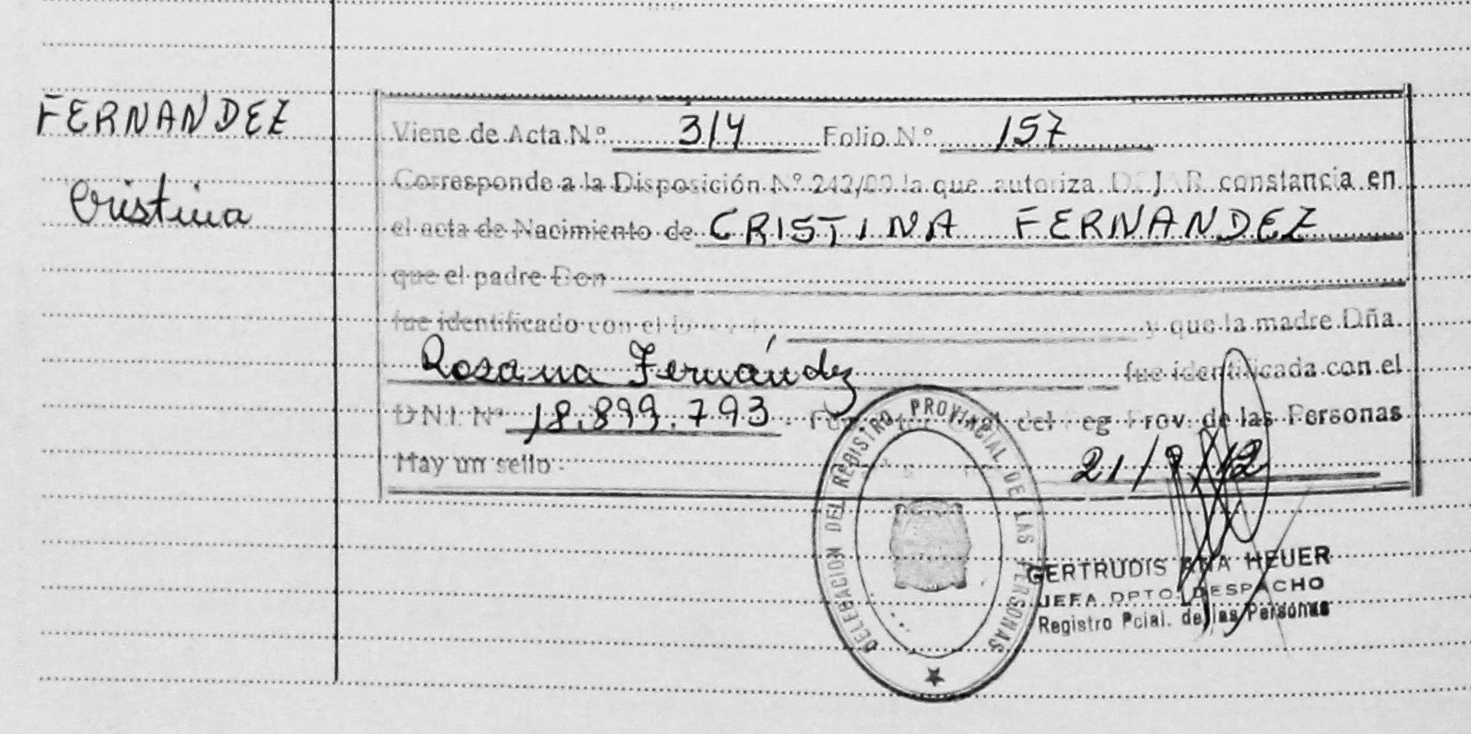 FERNANDEZ
Cristina
Viene de Acta N° 314 Folio N° 157
Corresponde a la Disposición N° 242/00 la que autoriza DEJAR constancia en
el acta de Nacimiento de CRISTINA FERNANDEZ
que el padre Don
fue identificado con el y que la madre Dña.
Rosana Fernández fue identificada con el
DNI. N° 18.899.793. del Reg Prov. de las Personas
Hay un sello. 21/ /12
DELEGACION DEL REGISTRO PROVINCIAL DE LAS PERSONAS
GERTRUDIS ANA HEUER
JEFA DPTO. DESPACHO
Registro Pcial. de las Personas